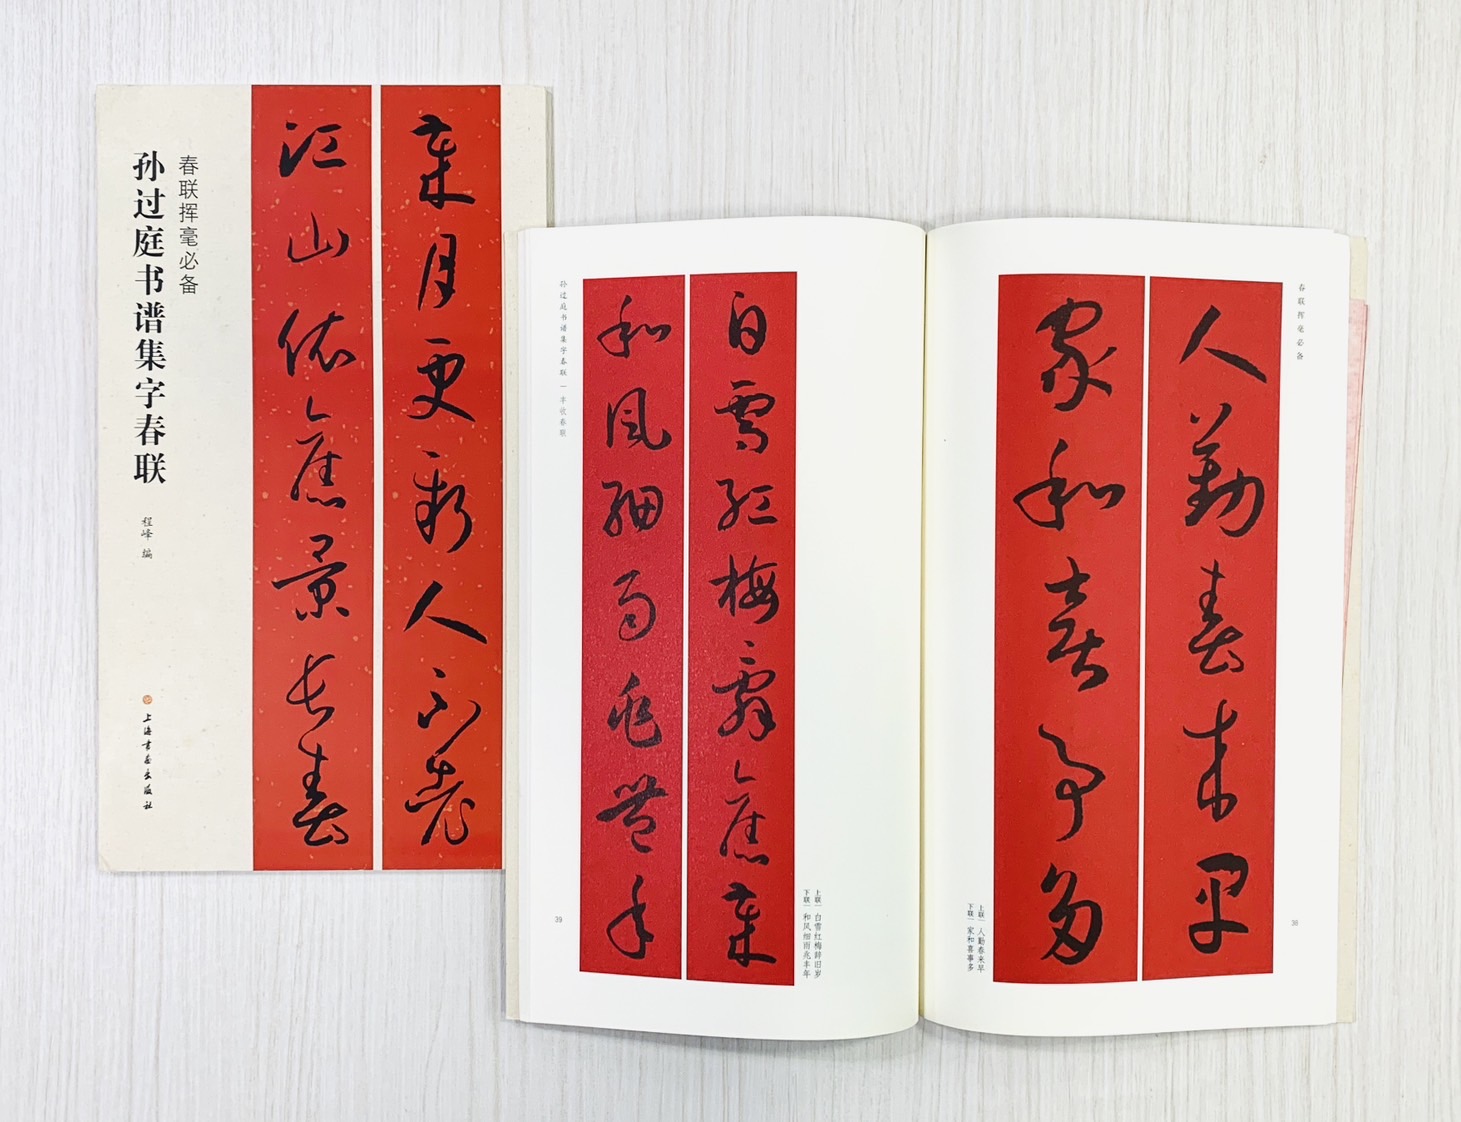 岁月更新人不老
江山依旧景长春
春联挥毫必备
孙过庭书谱集字春联
程峰 编
上海书画出版社
春联挥毫必备
人勤春来早
家和喜事多
上联｜人勤春来早
下联｜家和喜事多
38
白雪红梅辞旧岁
和风细雨兆丰年
上联｜白雪红梅辞旧岁
下联｜和风细雨兆丰年
孙过庭书谱集字春联｜丰收春联
39